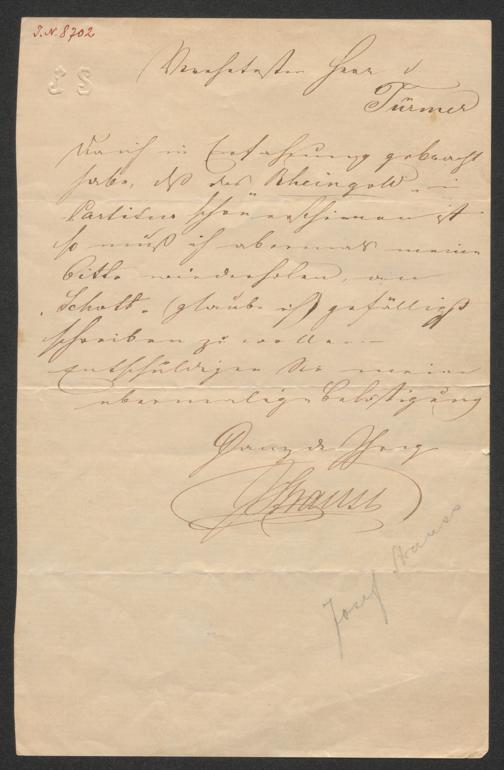 J.N. 8702
JS
Verehrtester Herr v
Türmer
Da ich in Erfahrung gebracht
habe, daß das Rheingold in
Partitur schon erschienen ist
so muß ich abermals meine
Bitte wiederholen, an
"Schott" (glaube ich) gefälligst
schreiben zu wollen.—
Entschuldigen Sie meine
abermalige Belästigung
Ganz der Ihrige
JStrauss
Josef Strauss